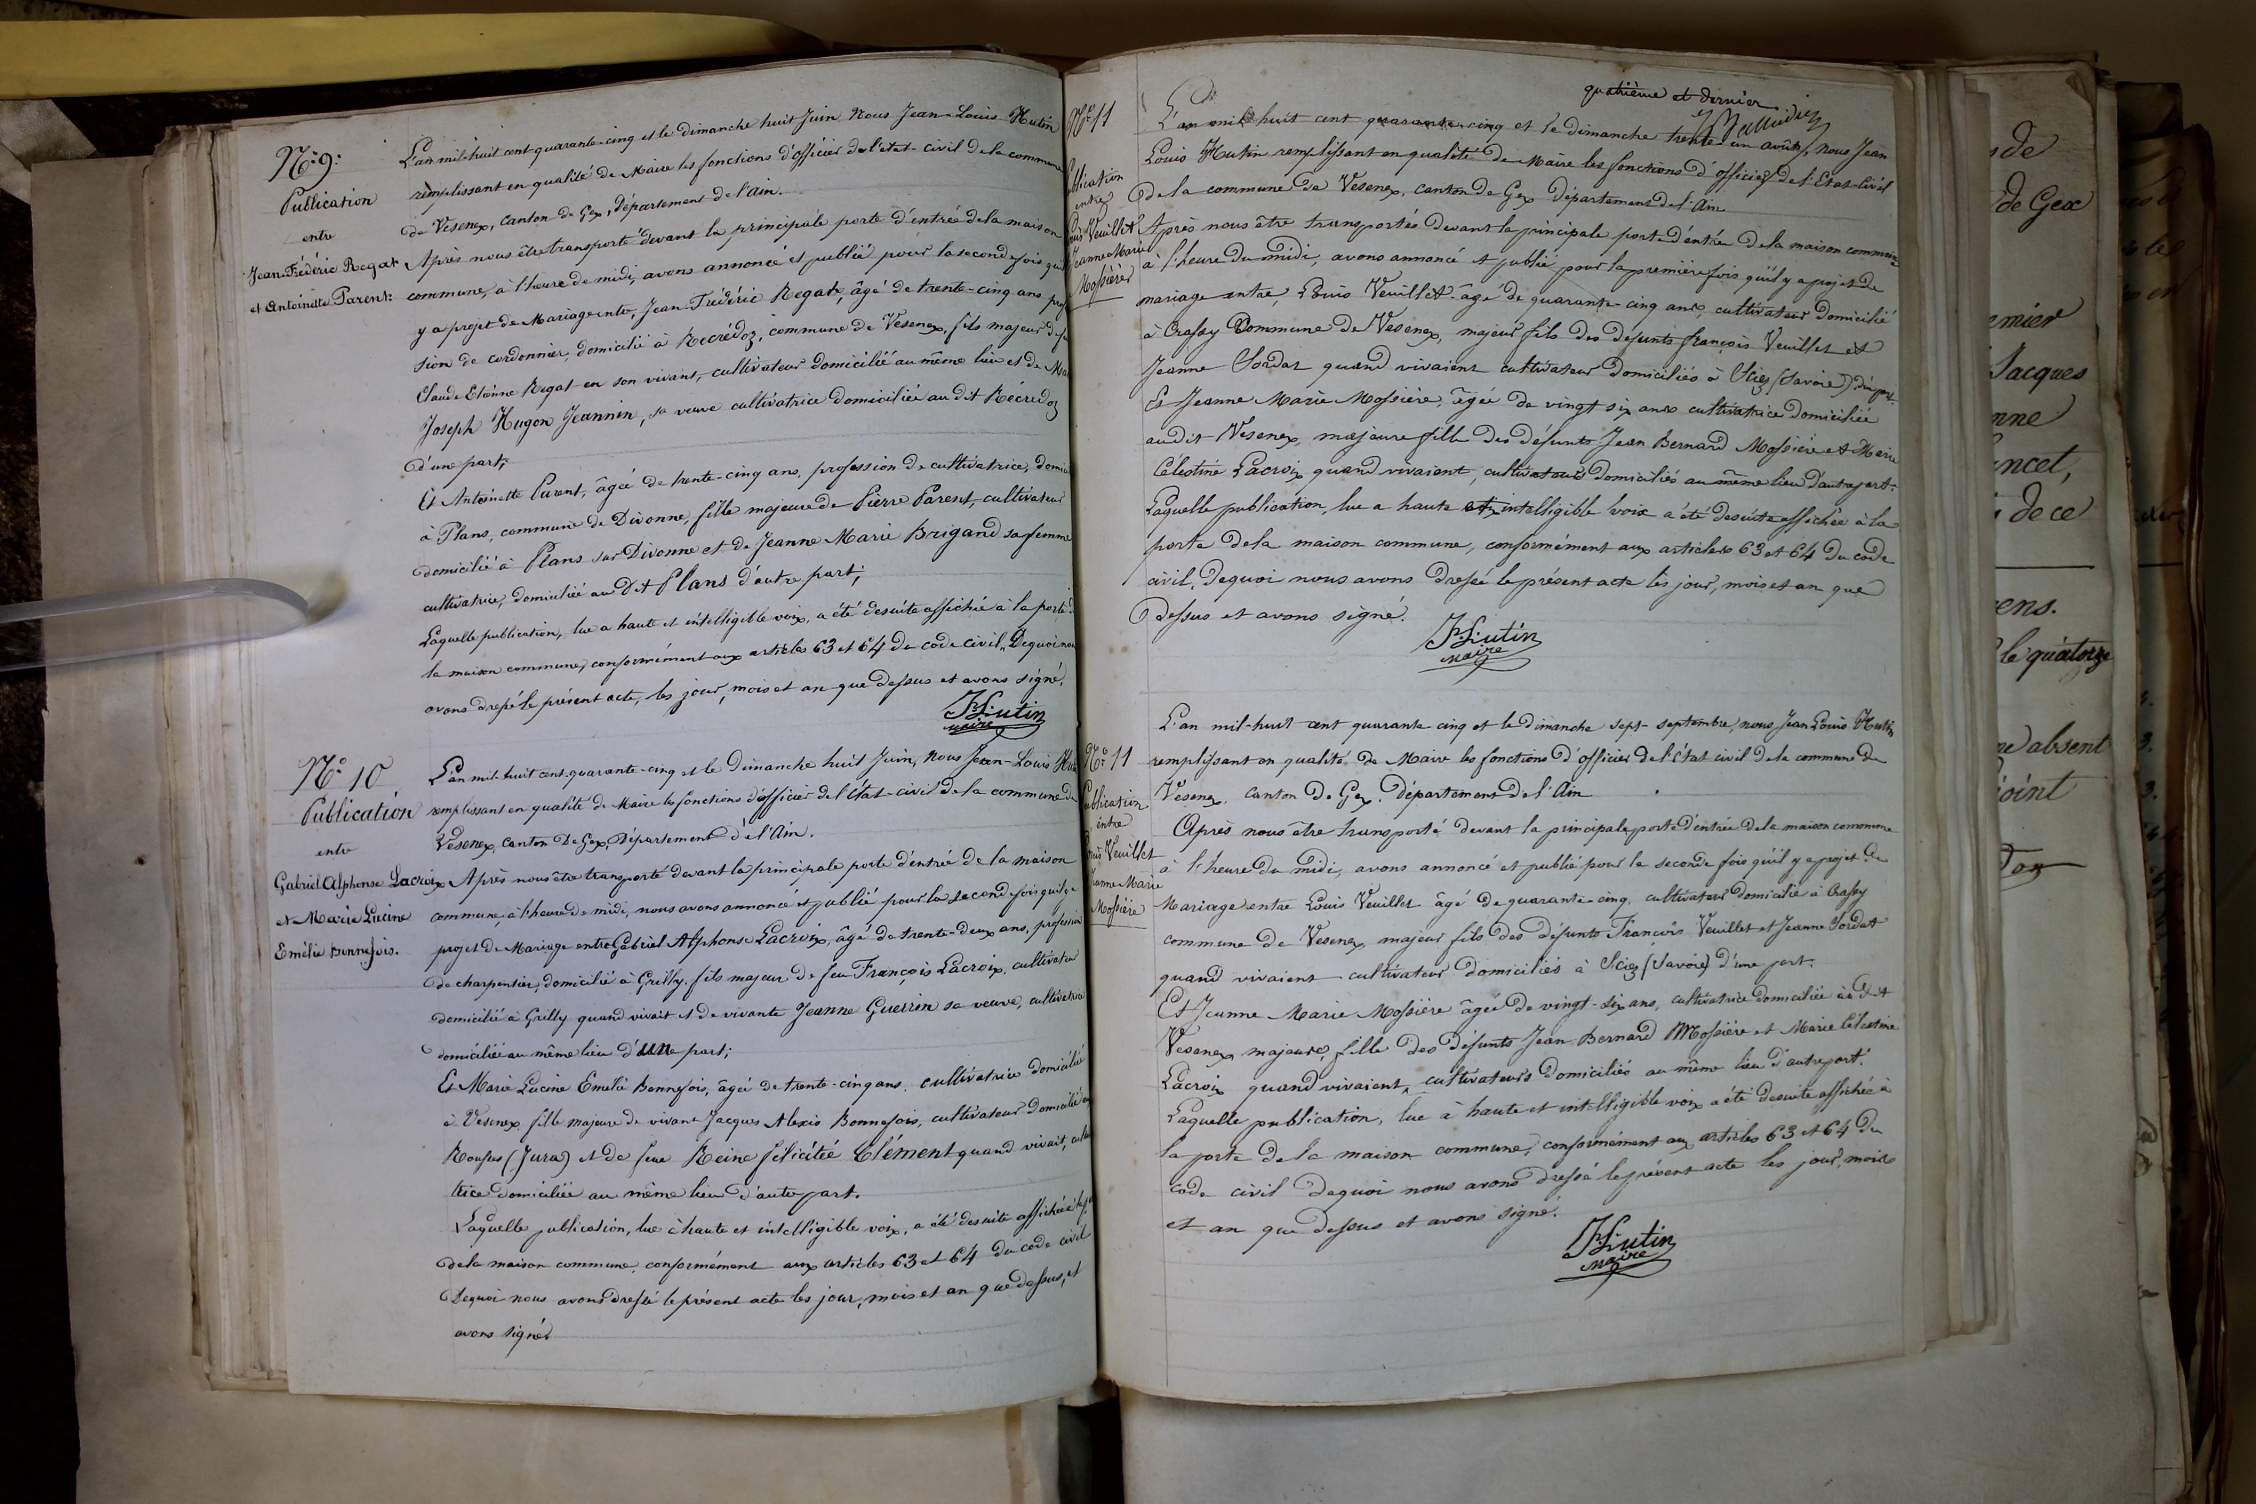 N.º 9.
Publication
entre
Jean-Frédéric Regat
et Antoinette Parent.
L'an mil-huit cent-quarante-cinq et le dimanche huit Juin Nous Jean-Louis Hutin
remplissant en qualité de Maire les fonctions d'officier de l'etat-civil de la commune
de Vesenex, canton de Gex, département de l'ain.
Après nous être transporté devant la principale porte d'entrée de la maison
commune, à l'heure de midi, avons annoncé et publié pour la seconde fois qu'il
y a projet de Mariage entre, Jean-Frédéric Regat, âgé de trente-cinq ans profes
sion de cordonnier, domicilié à Recrédoz, commune de Vesenex, fils majeur de
Claude Etiénne Regat en son vivant, cultivateur domicilié au même lieu et de
Joseph Hugon Jeannin, sa veuve cultivatrice domiciliée au dit Récredoz
d'une part;
Et Antoinette Parent, âgée de trente-cinq ans, profession de cultivatrice, domici
à Plans, commune de Divonne, fille majeure de Pierre Parent, cultivateur
domicilié à Plans sur Divonne et de Jeanne Marie Brigand sa femme
cultivatrice, domiciliée au Dit Plans d'autre part;
Laquelle publication, lue a haute et intelligible voix, a été desuite affichée à la porte d
la maison commune, conformément aux articles 63 et 64 du code civil. De quoi nous
avons dressé le présent acte, les jour, mois et an que dessus et avons signé.
JLHutin
maire
N.º 10
Publication
entre
Gabriel Alphonse Lacroix
et Marie Lucine
Emélie Bonnefois.
L'an mil-huit cent-quarante-cinq et le Dimanche huit Juin, Nous Jean-Louis Hu
remplissant en qualité de Maire les fonctions d'officier de l'état-civil de la commune de
Vesenex, canton De Gex, Département de l'Ain.
Après nous être transporté devant la principale porte d'entrée de la maison
commune, à l'heure de midi, nous avons annoncé et publié pour la seconde fois qu'il y a
projet de Mariage entre Gabriel Alphonse Lacroix, âgé de trente-deux ans, profession
de charpentier, domicilié à Grilly, fils majeur de feu François Lacroix, cultivateur
domicilié à Grilly quand vivait et de vivante Jeanne Guerrin sa veuve, cultivatrice
domiciliée au même lieu d'une part;
Et Marie Lucine Emelie Bonnefois, âgée de trente-cinq ans, cultivatrice domiciliée
à Vesenex fille majeure de vivant Jacques Alexis Bonnefois, cultivateur domicilié
Rousses (Jura) et de feue Reine félicitée Clément quand vivait, cultiva
trice domiciliée au même lieu d'autre part.
Laquelle publication, lue à haute et intelligible voix, a été desuite affichée à la
de la maison commune, conformément aux articles 63 et 64 du code civil
Dequoi nous avons dressé le présent acte les jour, mois et an que dessus, et
avons signé
quatrième et dernier
N.º 11
Publication
entre
Louis Veuillet
Jeanne Marie
Mossière
L'an mil huit cent quarante-cinq et le dimanche trente un août, nous Jean
Louis Hutin remplissant en qualité de Maire les fonctions d'officier de l'Etat-Civil
de la commune de Vesenex, canton de Gex Département de l'Ain
Après nous être transportés devant la principale porte d'entrée de la maison commune
à l'heure du midi, avons annoncé et publié pour la première fois qu'il y a projet de
mariage entre Louis Veuillet âgé de quarante-cinq ans, cultivateur domicilié
à Crassy Commune de Vesenex, majeur fils des défunts françois Veuillet et
Jeanne Sordat quand vivaient cultivateur domiciliés à Sciez (Savoie) d'une part.
Et Jeanne Marie Mossière, âgée de vingt six ans cultivatrice domiciliée
audit Vesenex, majeure fille des défunts Jean Bernard Mossière et Marie
Célestine Lacroix quand vivaient, cultivateurs domiciliés au même lieu d'autre part.
Laquelle publication, lue a haute et intelligible voix a été desuite affichée à la
porte de la maison commune, conformément aux articles 63 et 64 du code
civil. Dequoi nous avons dressé le présent acte les jour, mois et an que
dessus et avons signé.
JLHutin
maire
N.º 11
Publication
entre
Louis Veuillet
Jeanne Marie
Mossière
L'an mil-huit cent quarante cinq et le dimanche sept septembre, nous Jean Louis Hutin
remplissant en qualité de Maire les fonctions d'officier de l'état civil de la commune de
Vesenex, canton de Gex, Département de l'Ain
Après nous être transporté devant la principale porte d'entrée de la maison commune
à l'heure du midi, avons annoncé et publié pour la seconde fois qu'il y a projet de
Mariage entre Louis Veuillet âgé de quarante-cinq, cultivateur domicilié à Crassy
commune de Vesenex, majeur fils des défunts François Veuillet et Jeanne Sordat
quand vivaient cultivateur domiciliés à Sciez (Savoie) d'une part.
Et Jeanne Marie Mossière âgée de vingt-six ans, cultivatrice domiciliée au dit
Vesenex majeure, fille des défunts Jean Bernard Mossière et Marie Célestine
Lacroix quand vivaient, cultivateurs domiciliés au même lieu d'autre part.
Laquelle publication, lue à haute et intelligible voix a été desuite affichée à
la porte de la maison commune, conformément aux articles 63 et 64 du
code civil Dequoi nous avons dressé le présent acte les jour, mois
et an que dessus et avons signé.
JLHutin
maire
de
de Gex
emier
Jacques
nne
ncet,
de ce
ens.
le quatorze
ne absent
joint